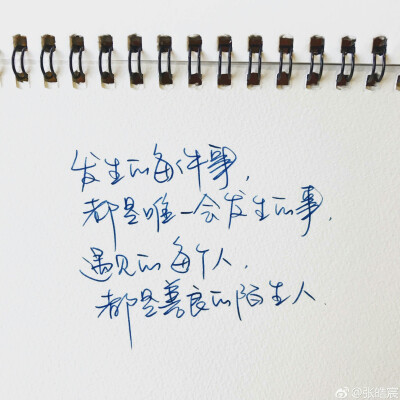 发生的每件事，
都是唯一会发生的事，
遇见的每个人，
都是善良的陌生人
@张皓宸